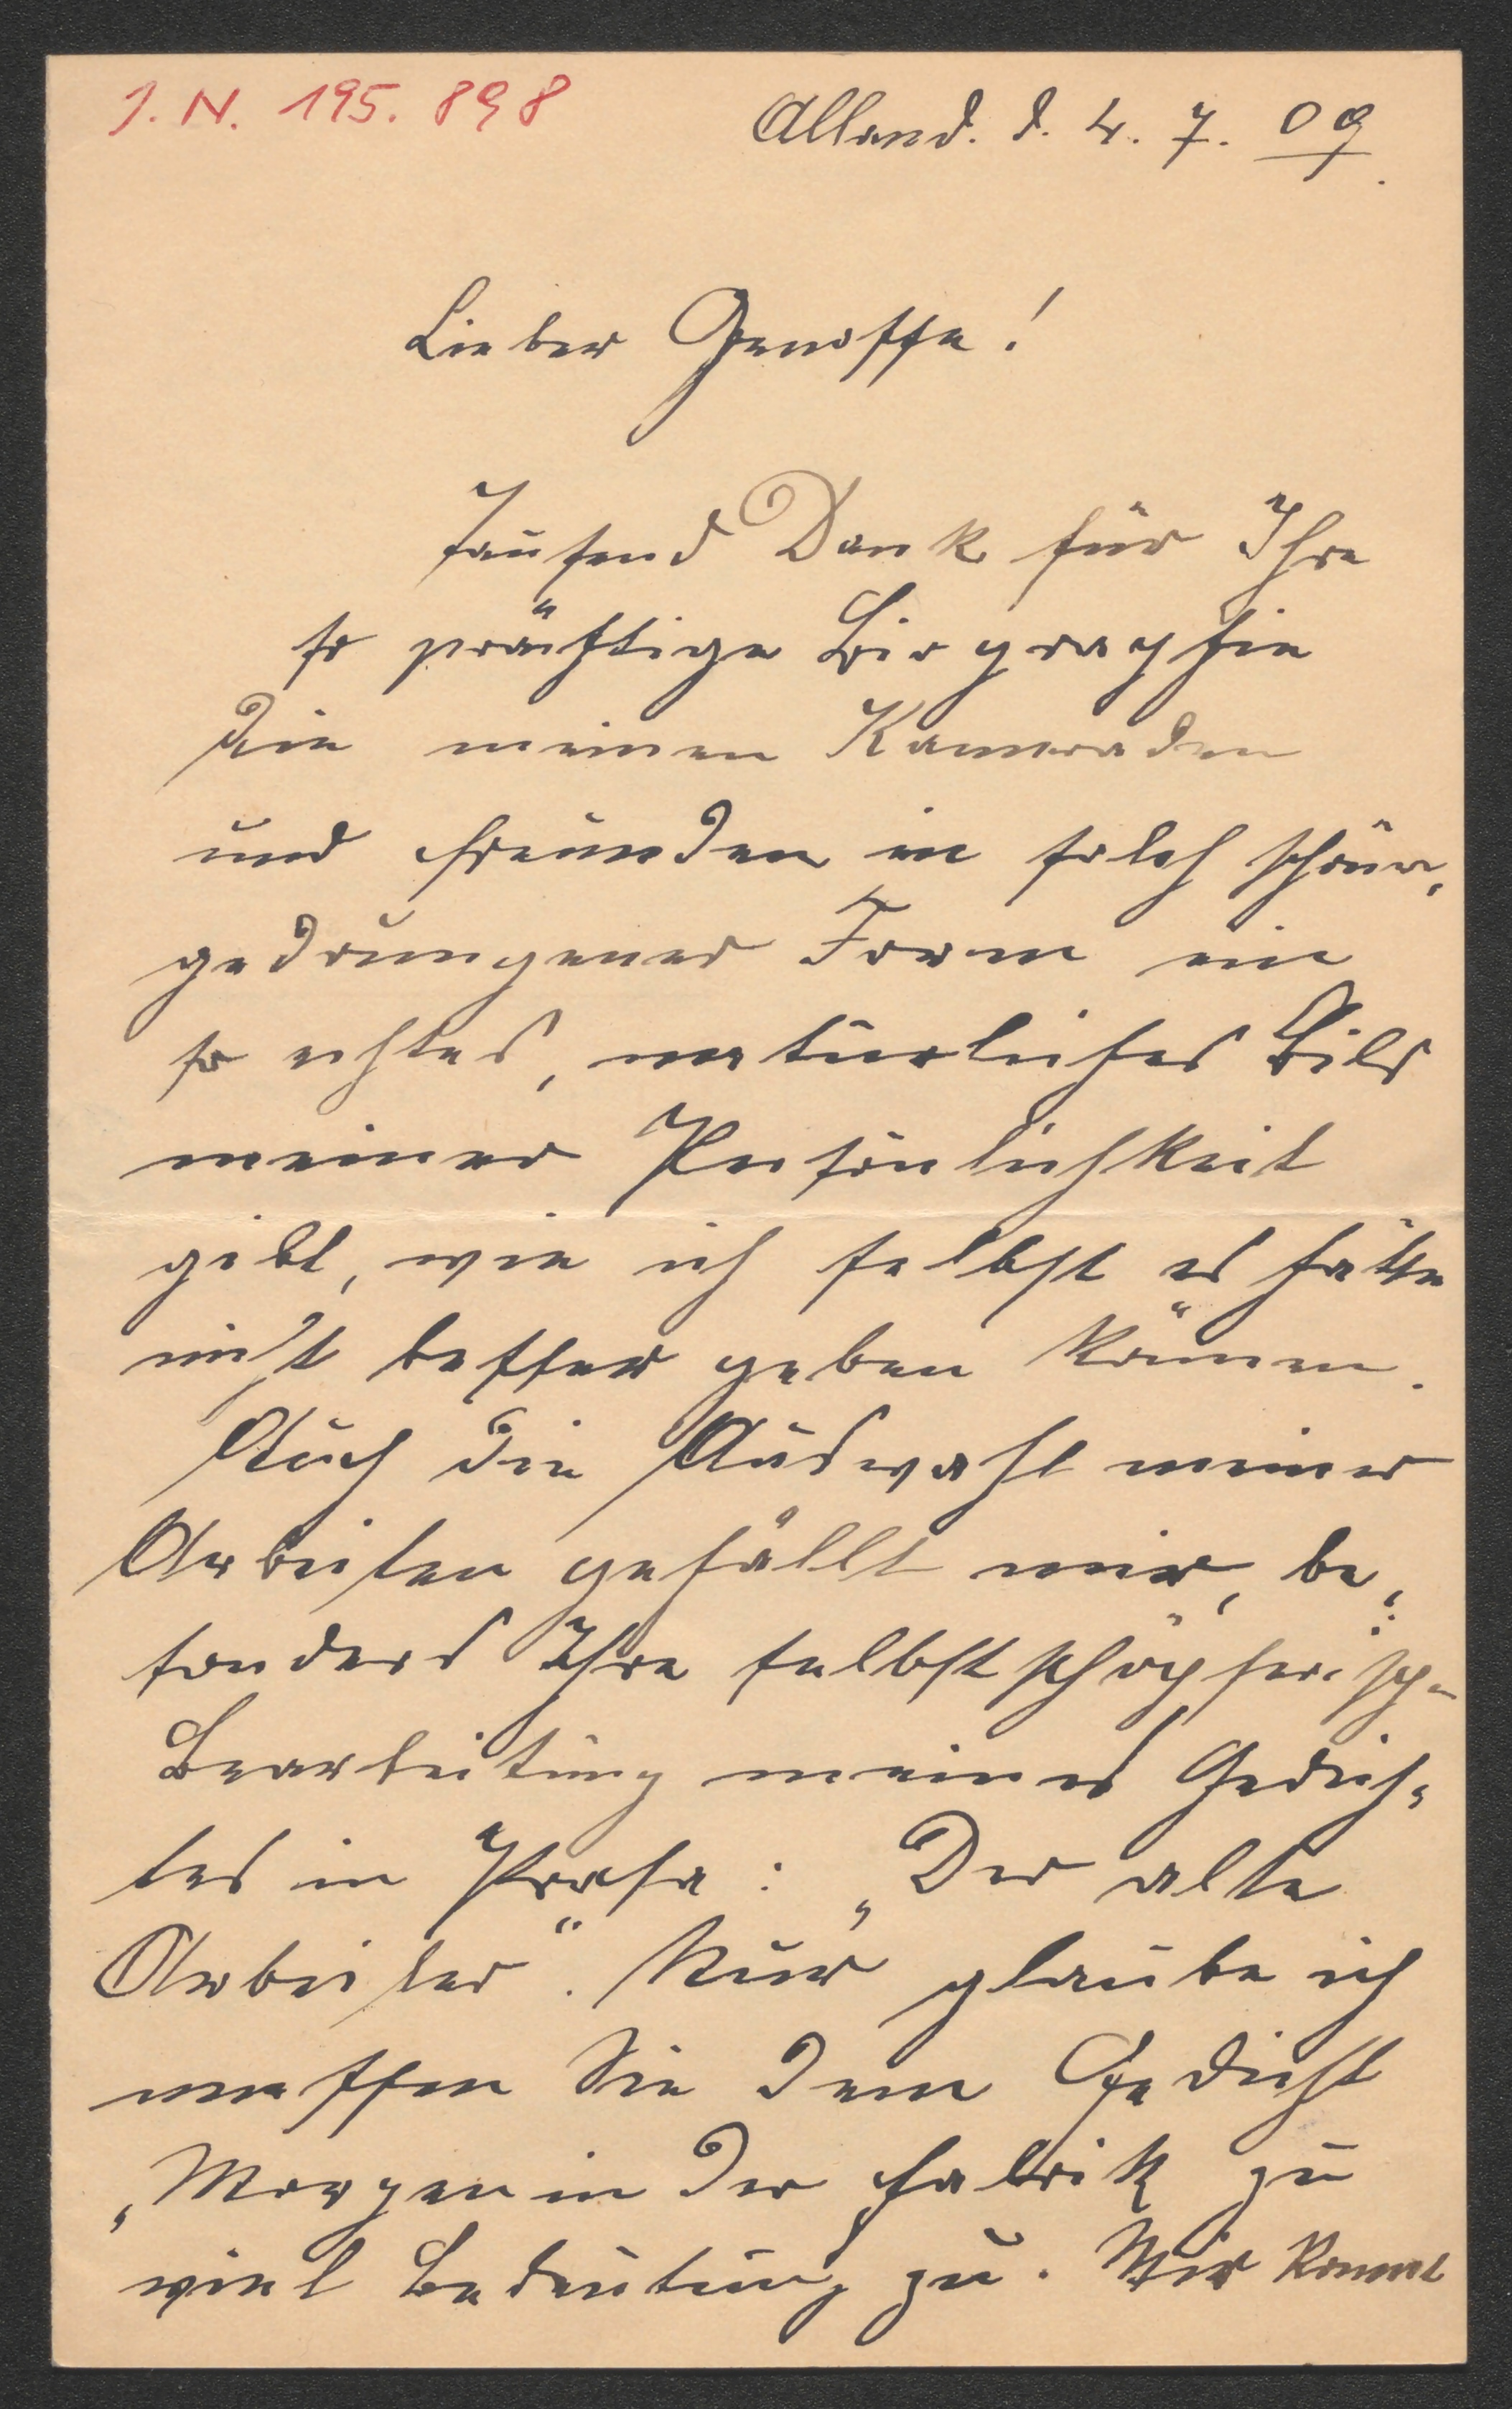 J. N. 195.898
Alland. d. 4. 7. 09.
Lieber Genosse!
Tausend Dank für Ihre
so prächtige Biographie
die meinen Kameraden
und Freunden in solch schöner,
gedrungener Form ein
so echtes, natürliches Bild
meiner Persönlichkeit
gibt, wie ich selbst es hätte
nicht besser geben können.
Auch die Auswahl meiner
Arbeiten gefällt mir, be-
sonders Ihre selbstschöpferische
Bearbeitung meines Gedich-
tes in Prosa: „Der alte
Arbeiter“. Nur glaube ich
messen Sie dem Gedicht
„Morgen in der Fabrik zu
viel Bedeutung zu. Mir kommt